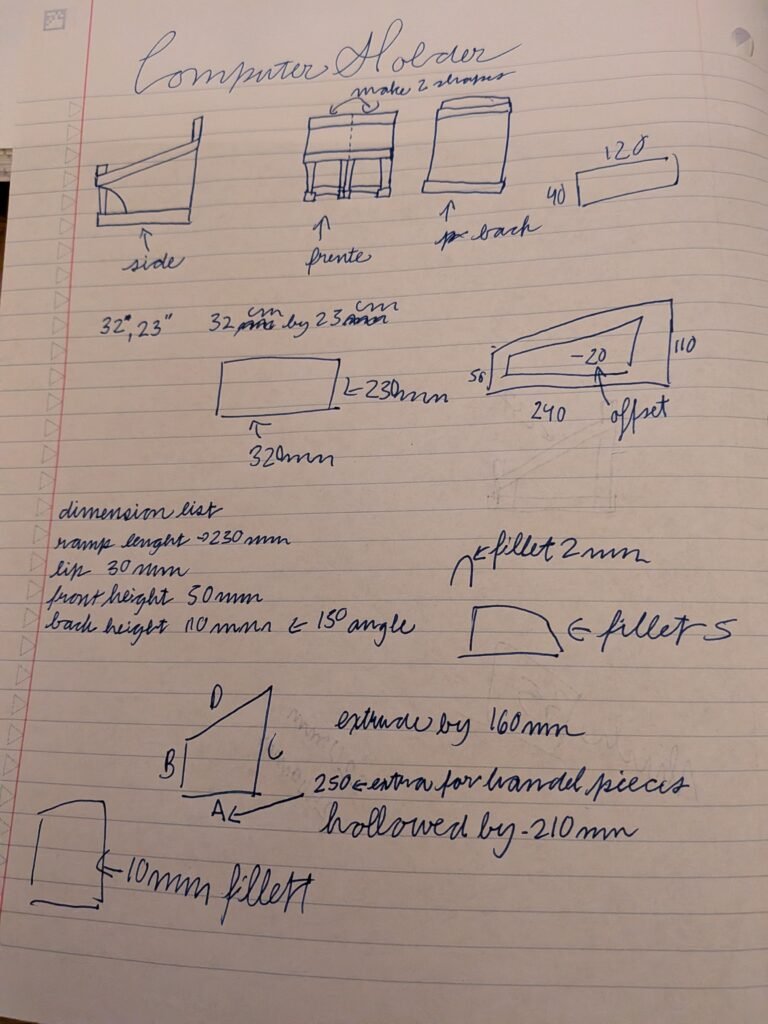 Computer Holder
make 2 shapes
120
40
side
frente
back
32", 23"
32 cm by 23 cm
230mm
320mm
50
-20
110
240
offset
dimension list
ramp lenght → 230mm
lip 30mm
front height 50mm
back height 110 mm ← 15° angle
← fillet 2mm
← fillet 5
D
B
C
A
extrude by 160mm
250 ← extra for handel pieces
hollowed by -210mm
← 10mm fillett